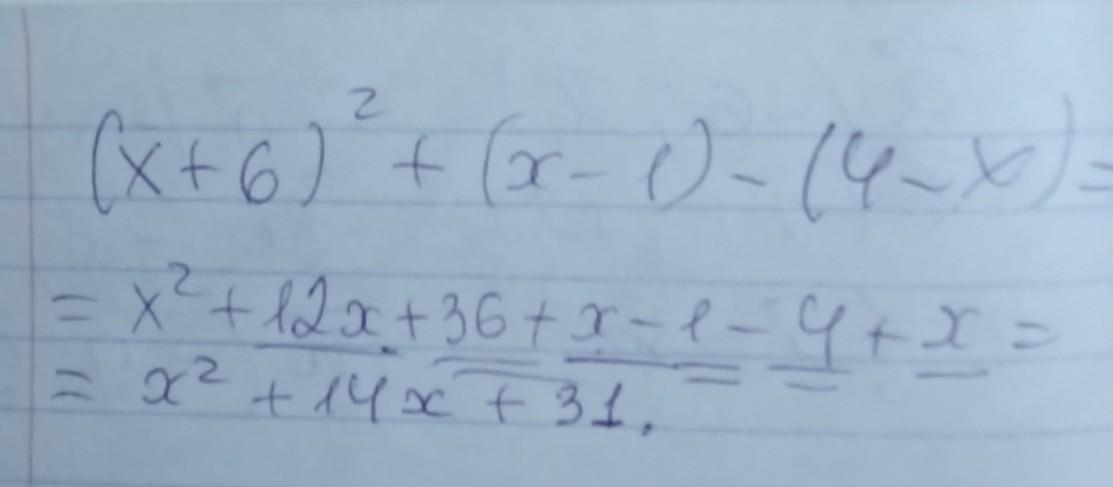 (x+6)² + (x-1) - (4-x) =
= x² + 12x + 36 + x - 1 - 4 + x =
= x² + 14x + 31.